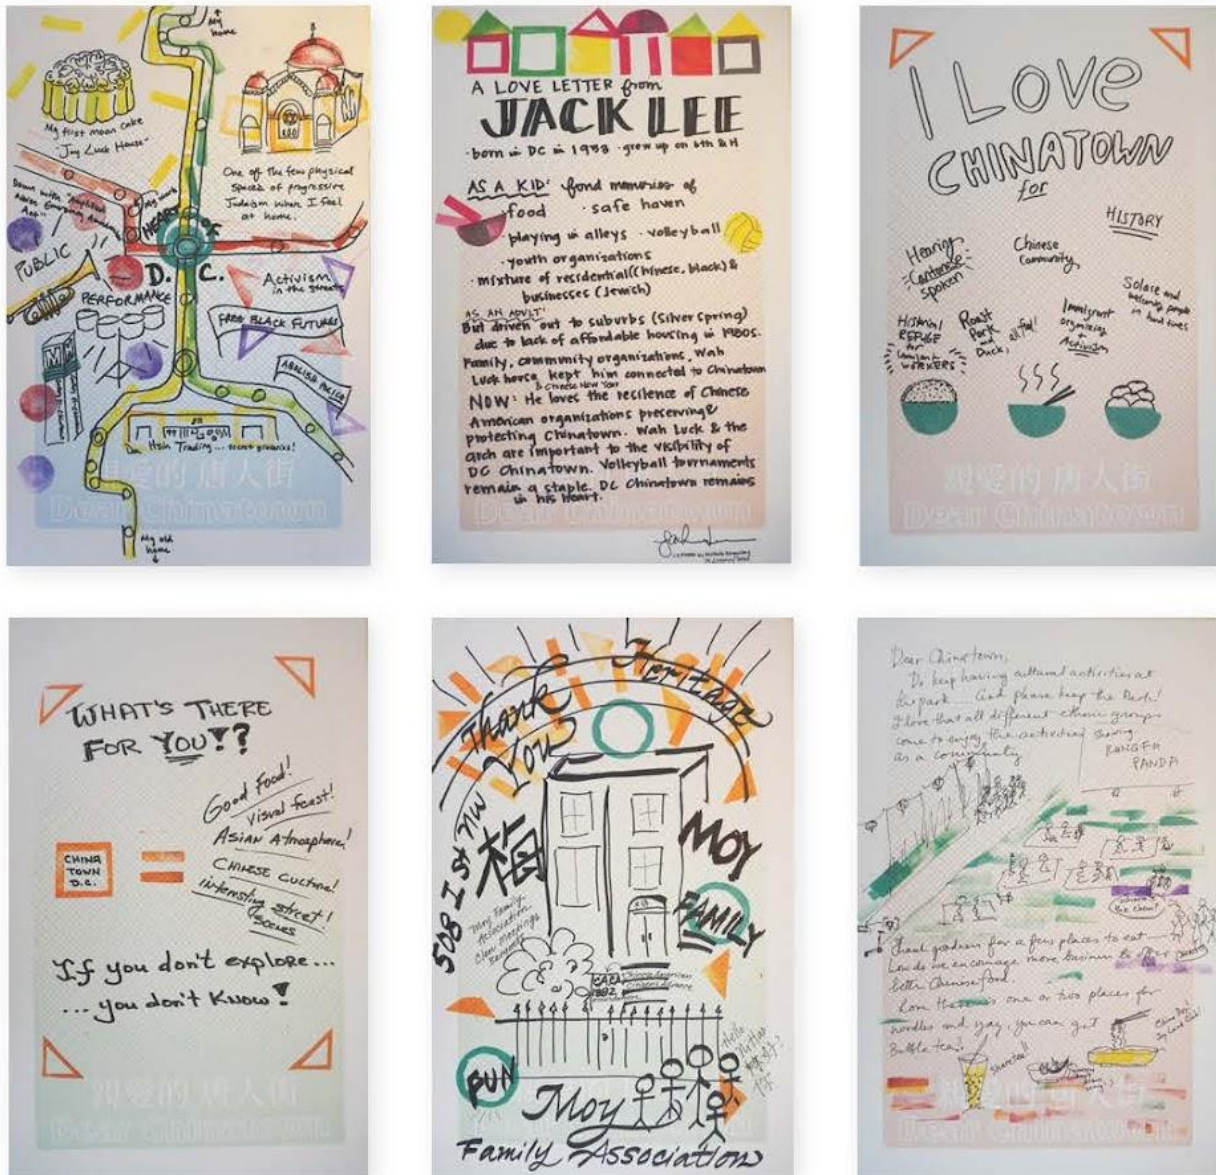 My
home
My first moon cake
"Joy Luck House"
One of the few physical
spaces of progressive
Judaism where I feel
at home.
My work
HEART OF
D.C.
PUBLIC
PERFORMANCE
Activism
in the streets
FREE BLACK FUTURES
ABOLISH POLICE
Hsin Trading... secret groceries!
親愛的唐人街
Dear Chinatown
My old
home
A LOVE LETTER from
JACK LEE
· born in DC in 1938 · grew up on 6th & H
AS A KID: fond memories of
· food · safe haven
· playing in alleys · volleyball
· youth organizations
· mixture of residential (Chinese, black) &
businesses (Jewish)
AS AN ADULT:
But driven out to suburbs (Silver Spring)
due to lack of affordable housing in 1980s.
Family, community organizations, Wah
Luck house kept him connected to Chinatown
& Chinese New Year
NOW: He loves the resilence of Chinese
American organizations preserving &
protecting Chinatown. Wah Luck & the
arch are important to the visibility of
DC Chinatown. Volleyball tournaments
remain a staple. DC Chinatown remains
in his heart.
Dear Chinatown
I LOVE
CHINATOWN
for
HISTORY
Hearing
Cantonese
spoken
Chinese
Community
Solace and
welcoming people
in hard times
Historical
REFUGE
for
WORKERS
Roast
Pork
and
Duck,
Immigrant
organizing
+
Activism
親愛的唐人街
Dear Chinatown
WHAT'S THERE
FOR YOU!?
CHINA
TOWN
D.C.
=
Good Food!
Visual feast!
ASIAN Atmosphere!
CHINESE CULTURE!
interesting street!
scenes
If you don't explore...
...you don't know!
親愛的唐人街
Dear Chinatown
Thank You
Heritage
508 I St NW
梅
MOY
FAMILY
Moy Family
Association
Clan Meetings
Banquets
CACA
1882
Chinese American
Citizens Alliance
FUN
Hello
Moy
Family Association
Dear Chinatown,
Do keep having cultural activities at
the park. And please keep the Park!
I love that all different ethnic groups
come to enjoy the activities sharing
as a community
KUNG FU
PANDA
Thank goodness for a few places to eat
How do we encourage more business to offer
better Chinese food.
one or two places for
noodles and yay, you can get
Bubble tea!
Sharetea!!
親愛的唐人街
Dear Chinatown